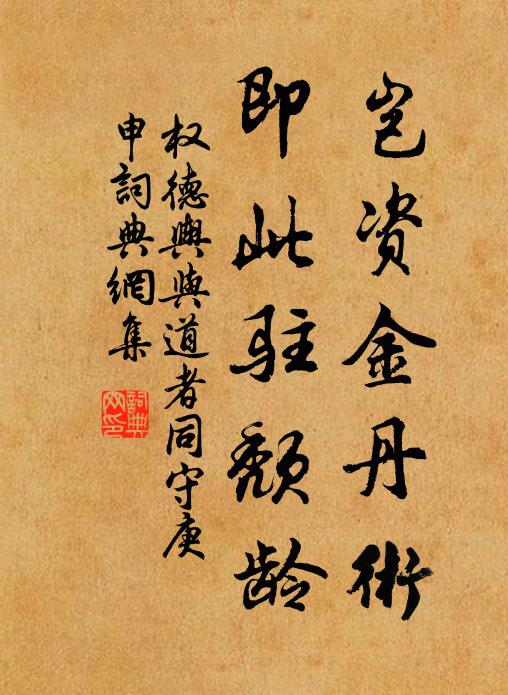 岂资金丹術
即此驻颓龄
权德舆與道者同守庚
申詞典網集
詞典
网印